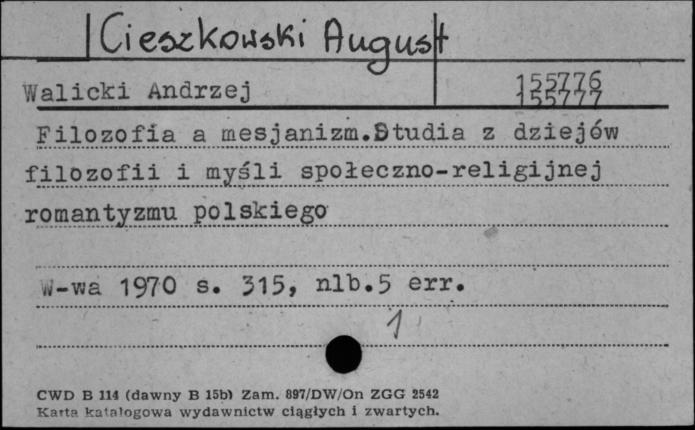 Cieszkowski August
Walicki Andrzej
155776
155777
Filozofia a mesjanizm.Studia z dziejów
filozofii i myśli społeczno-religijnej
romantyzmu polskiego
W-wa 1970 s. 315, nlb.5 err.
1
CWD B 114 (dawny B 15b) Zam. 897/DW/On ZGG 2542
Karta katalogowa wydawnictw ciągłych i zwartych.